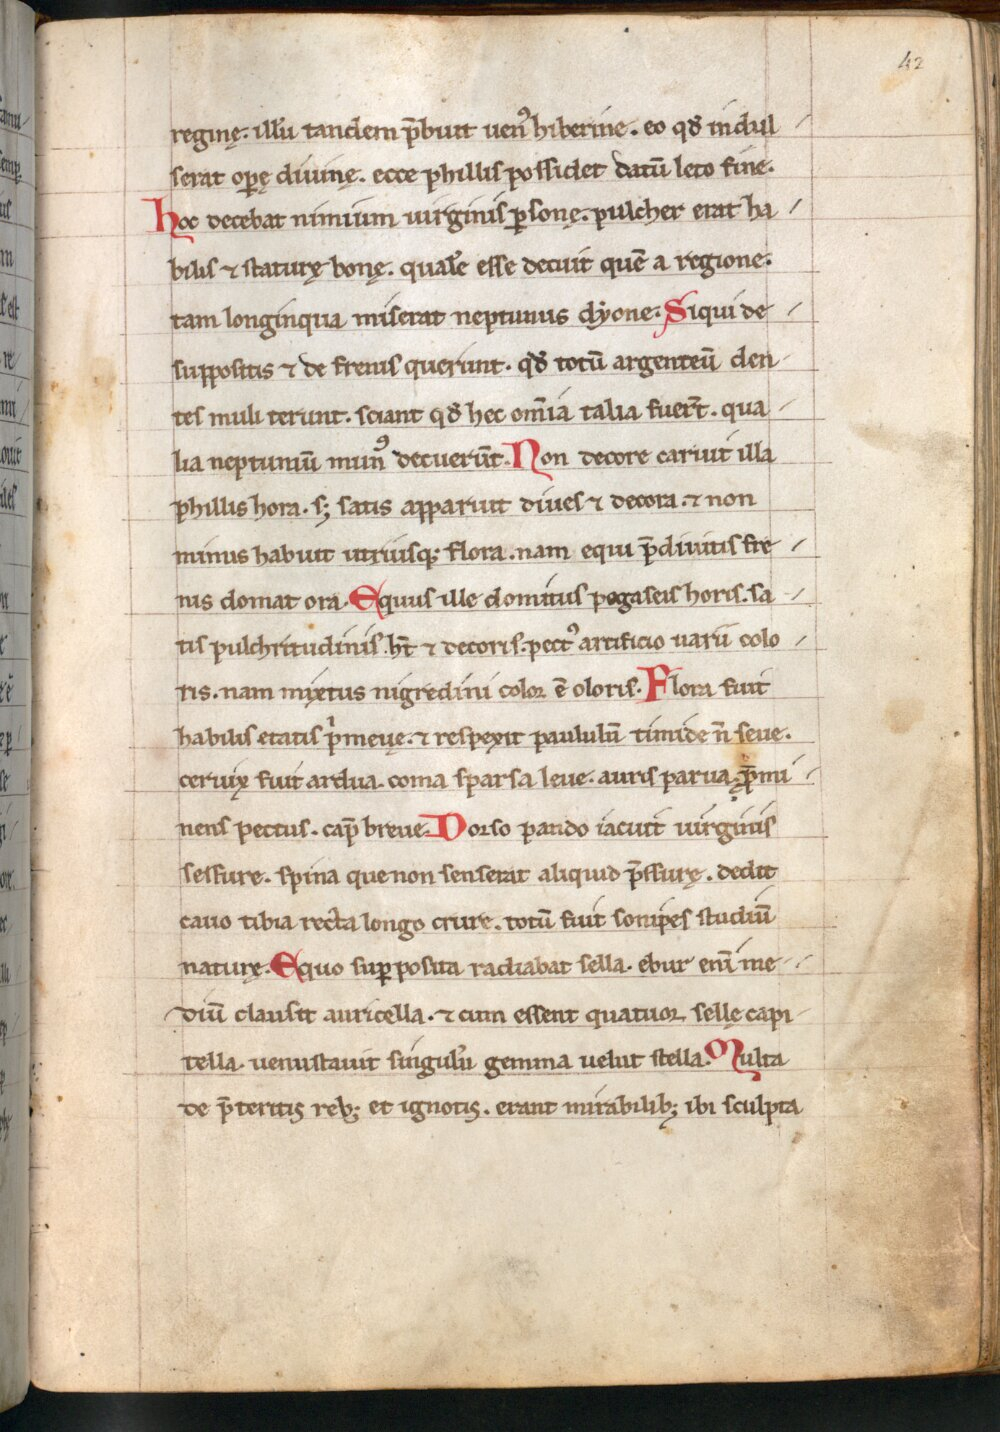 42
reginę. illū tandem p̄buit uenꝰ hiberine. eo qđ indul
serat opę diuinę. ecce phillis possidet datū leto fine.
Hoc decebat nimium uirginis ꝑsonę. pulcher erat ha
bilis ⁊ staturę bonę. qualē esse decuit quē a regione.
tam longinqua miserat neptunus dyone. Siqui de
suppositis ⁊ de frenis querunt. qđ totū argenteū den
tes muli terunt. sciant qđ hec om̄ia talia fuerт̄. qua
lia neptuniū munꝰ decuerūt. Non decore caruit illa
phillis hora. sꝫ satis apparuit diues ⁊ decora. ⁊ non
minus habuit utriusqꝫ flora. nam equi p̄diuitis fre
nis domat ora. Equus ille domitus pegaseis horis. sa
tis pulchritudinis. ht̄ ⁊ decoris. pectꝰ artificio uarii colo
ris. nam mixtus nigredini color ē oloris. Flora fuit
habilis etatis pͥmeuę. ⁊ respexit paululū timide n̄ seue.
ceruix fuit ardua. coma sparsa leue. auris parua. p̄mi
nens pectus. cap̄ breue. Dorso pando iacuit uirginis
sessure. spina que non senserat aliquid p̄ssurę. dedit
cauo tibia recta longo crure. totū fuit sonipes studiū
naturę. Equo suꝑposita radiabat sella. ebur enī me
diū clausit auricella. ⁊ cum essent quatuor sellę capi
tella. uenustauit singulū gemma uelut stella. Multa
de p̄teritis rebꝫ et ignotis. erant mirabilibꝫ ibi sculpta